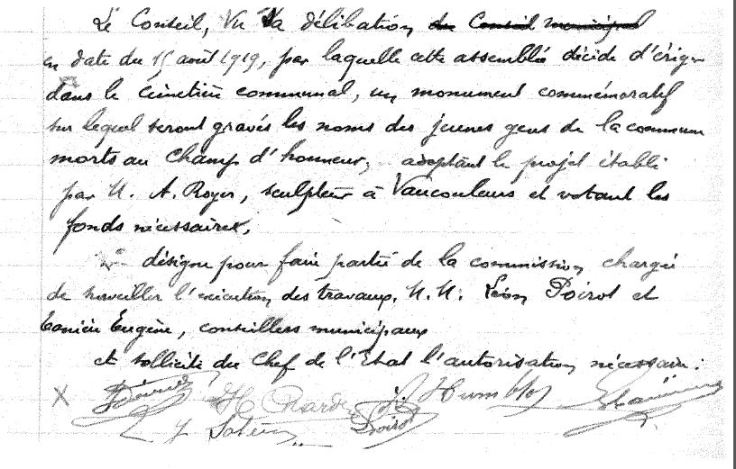 Le Conseil, Vu la délibation du Conseil municipal
en date du 15 août 1919, par laquelle cette assemblée décide d'ériger
dans le cimetière communal, un monument commémoratif
sur lequel seront gravés les noms des jeunes gens de la commune
morts au champ d'honneur, adoptant le projet établi
par M. A. Royer, sculpteur à Vaucouleurs et votant les
fonds nécessaires,
désigne pour faire partie de la commission chargée
de surveiller l'exécution des travaux, M.M. Léon Poirot et
Eugène, conseillers municipaux
et sollicite du Chef de l'Etat l'autorisation nécessaire.
X H Humblot
Poirot